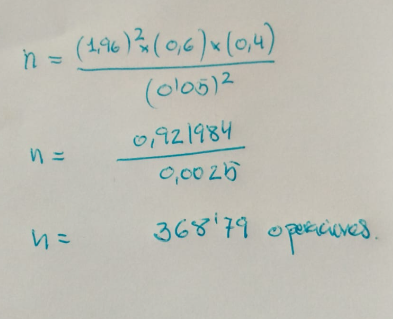 n = (1,96)²x(0,6)x(0,4)
(0'05)²
n = 0,921984
0,0025
n = 368'79 operaciones.